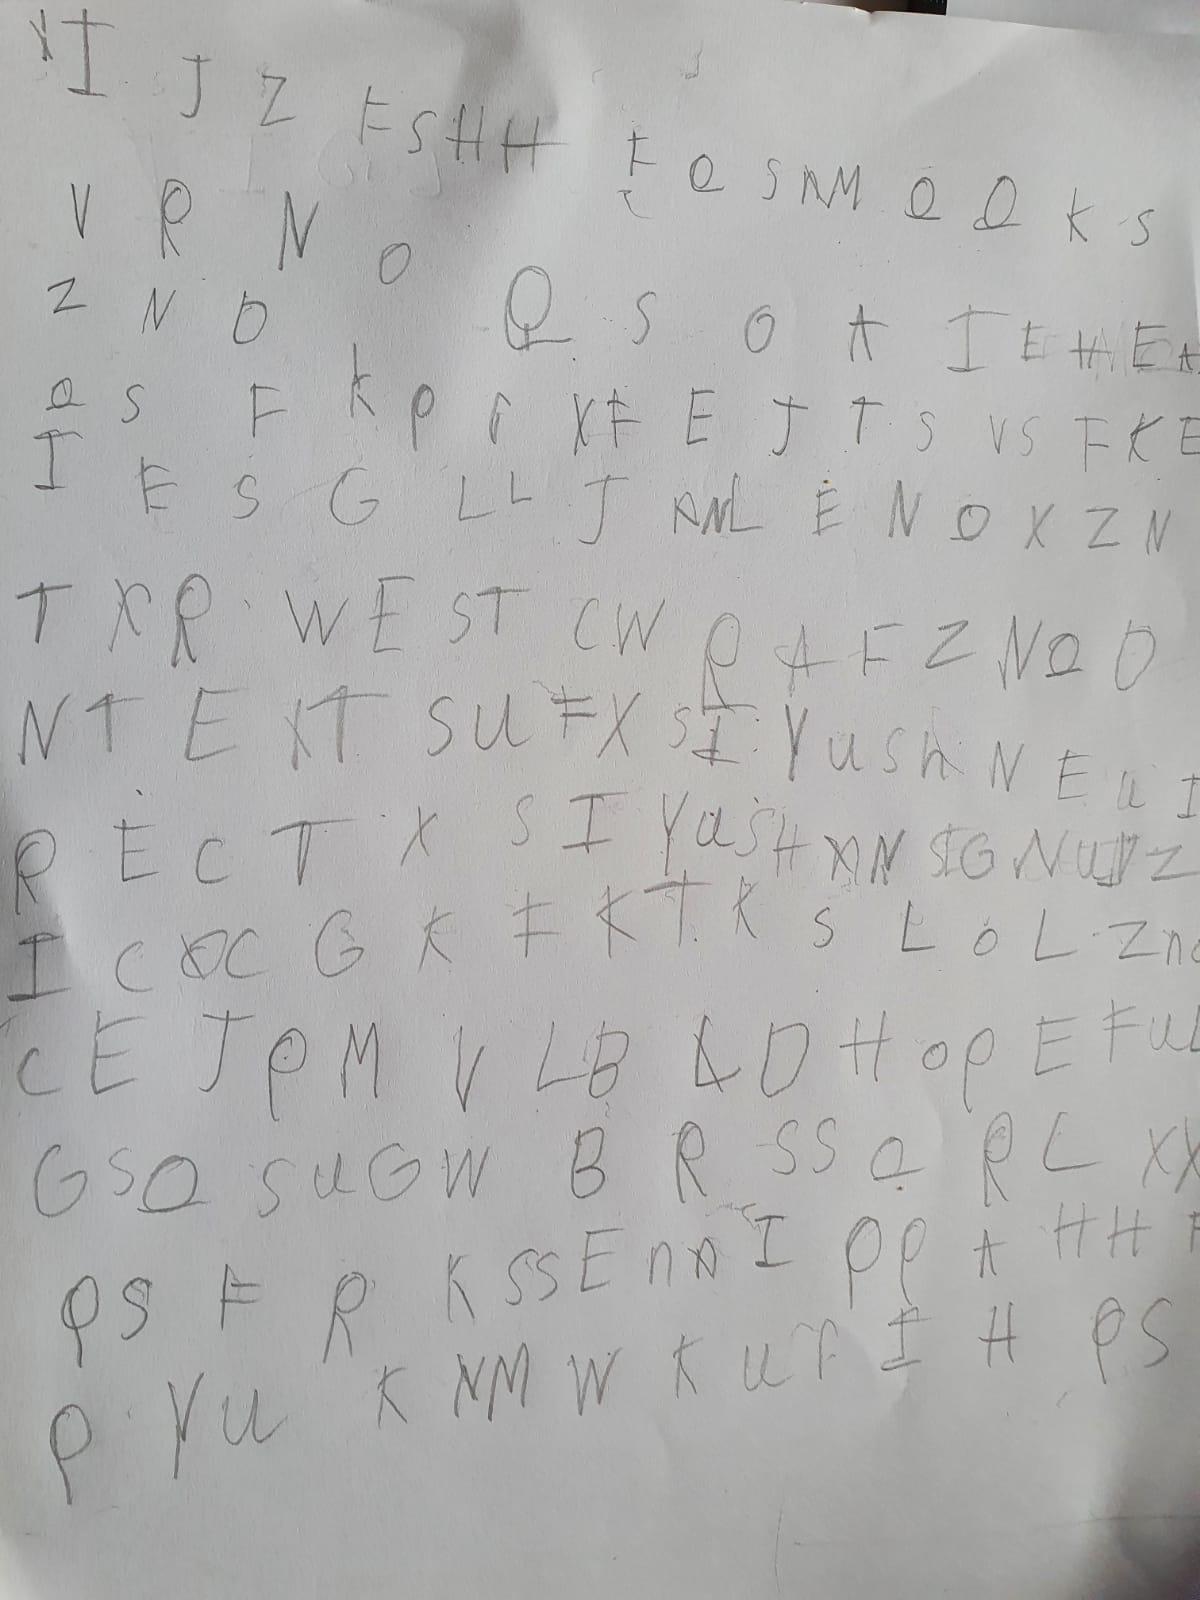 X I J Z F S H H F Q S A M Q Q K S
V R N O
Z N O Q S O A I E H E A
Q S F K P r X F E J T S V S F K E
I E S G L L J A N L E N O X Z N
T X R W E S T C W R A F Z N Q O
N T E X T S U F X S I Y u S h N E u I
R E C T X S I Y u S H A N S I G N U V Z
I C O C G K F K T K S L O L Z n
C E J P M V L B A D H O P E F U L
G S Q S U G W B R S S Q R L X X
P S F R K S S E n A I P P A H H F
P Y U K N M W K U F I H P S